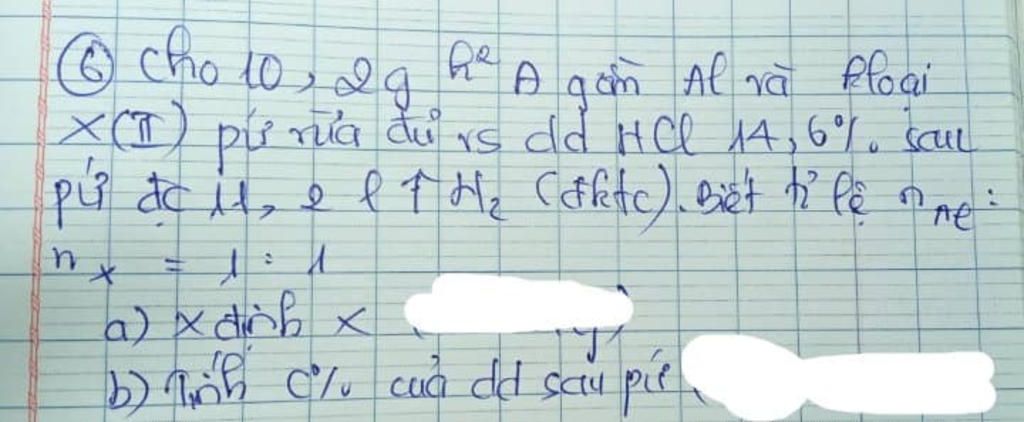 ⑥ Cho 10,2g h² A gồm Al và kloại
X(II) pứ vừa đủ vs dd HCl 14,6%. Sau
pứ đc 11,2 l ↑ H₂ (đktc). Biết tỉ lệ n Al :
n x = 1 : 1
a) Xđịnh X
b) Tính C% của dd sau pứ